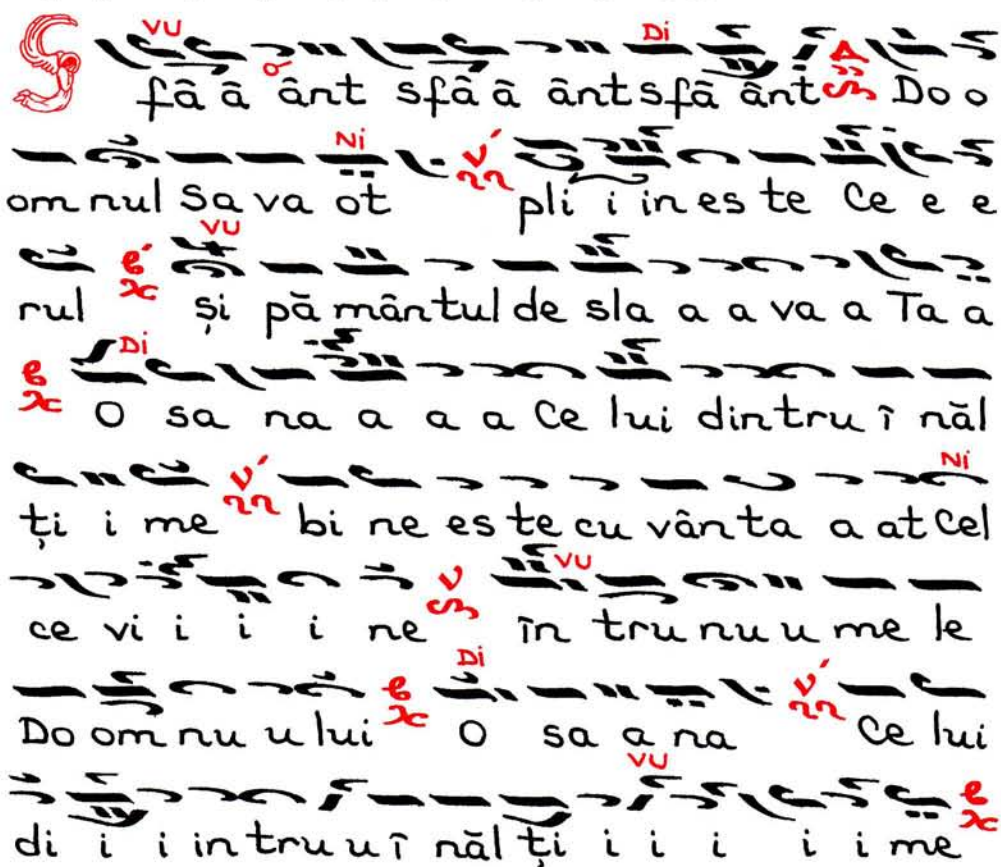 VU Di
S fâ â ânt sfâ â ânt sfâ ânt Do o
Ni
om nul Sa va ot pli i in es te Ce e e
VU
rul și pă mântul de sla a a va a Ta a
Di
O sa na a a a Ce lui dintru î năl
Ni
ți i me bi ne es te cu vân ta a at Cel
VU
ce vi i i i ne în tru nu u me le
Di
Do om nu u lui O sa a na Ce lui
VU
di i i in tru u î năl ți i i i i i me